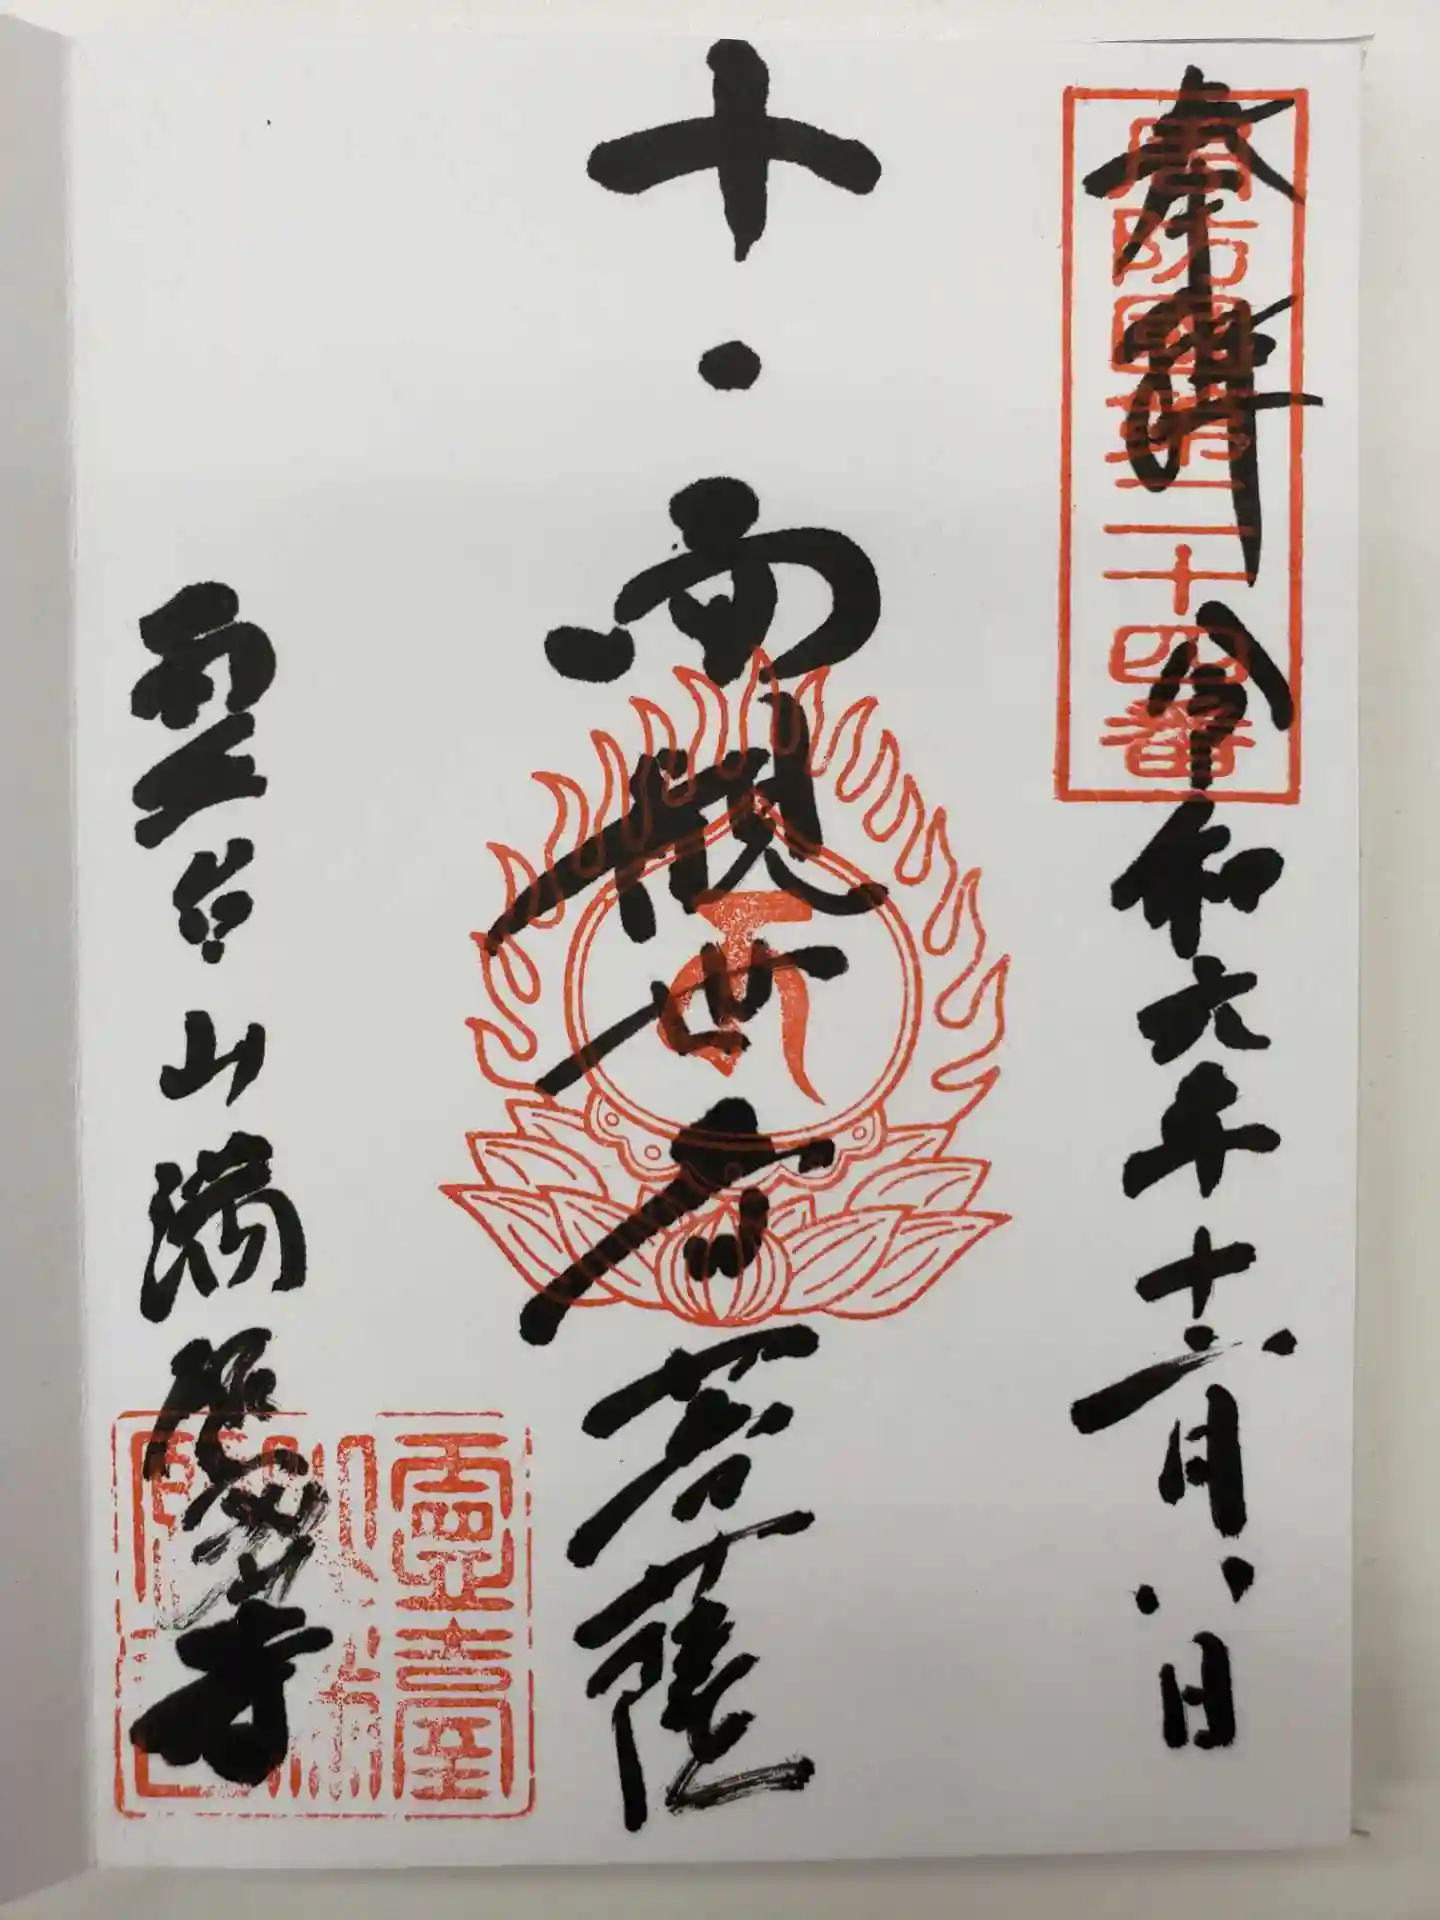 奉拝 令和六年十二月八日
周防國第二十四番
十一面観世音菩薩
霊台山満願寺